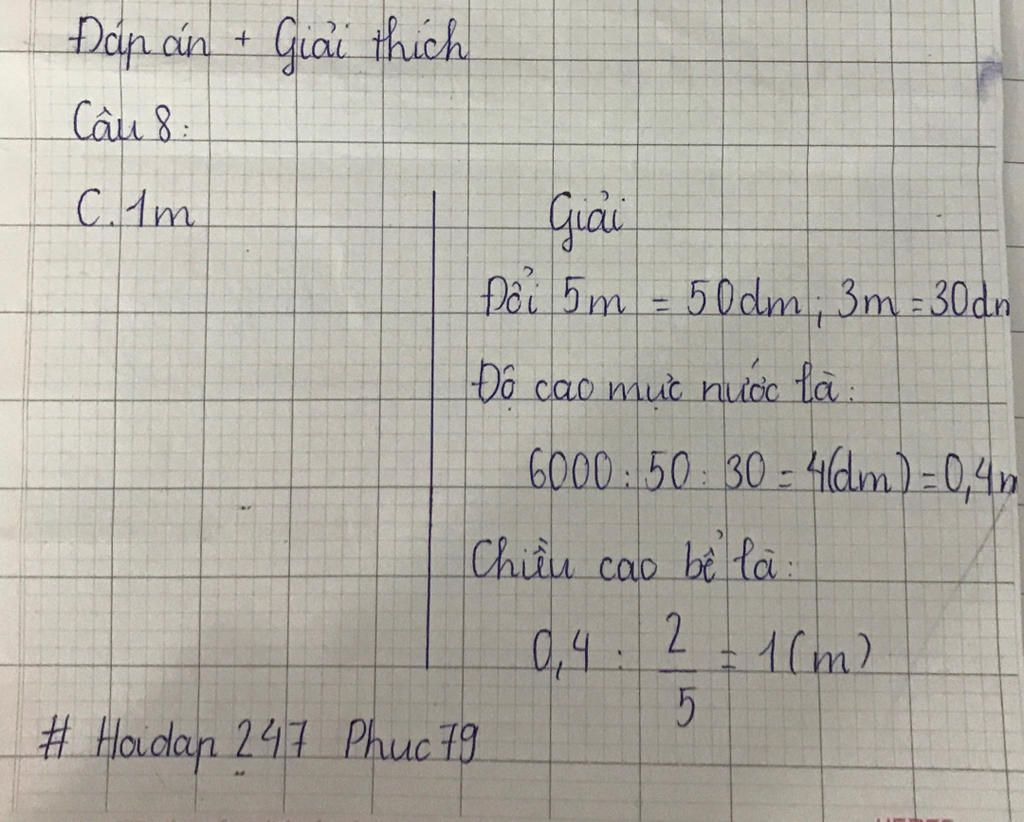 Đáp án + Giải thích
Câu 8:
C. 1m
Giải
Đổi 5m = 50dm; 3m = 30dm
Độ cao mực nước là:
6000 : 50 : 30 = 4(dm) = 0,4m
Chiều cao bể là:
0,4 : 2/5 = 1(m)
# Hoidap 247 Phuc79